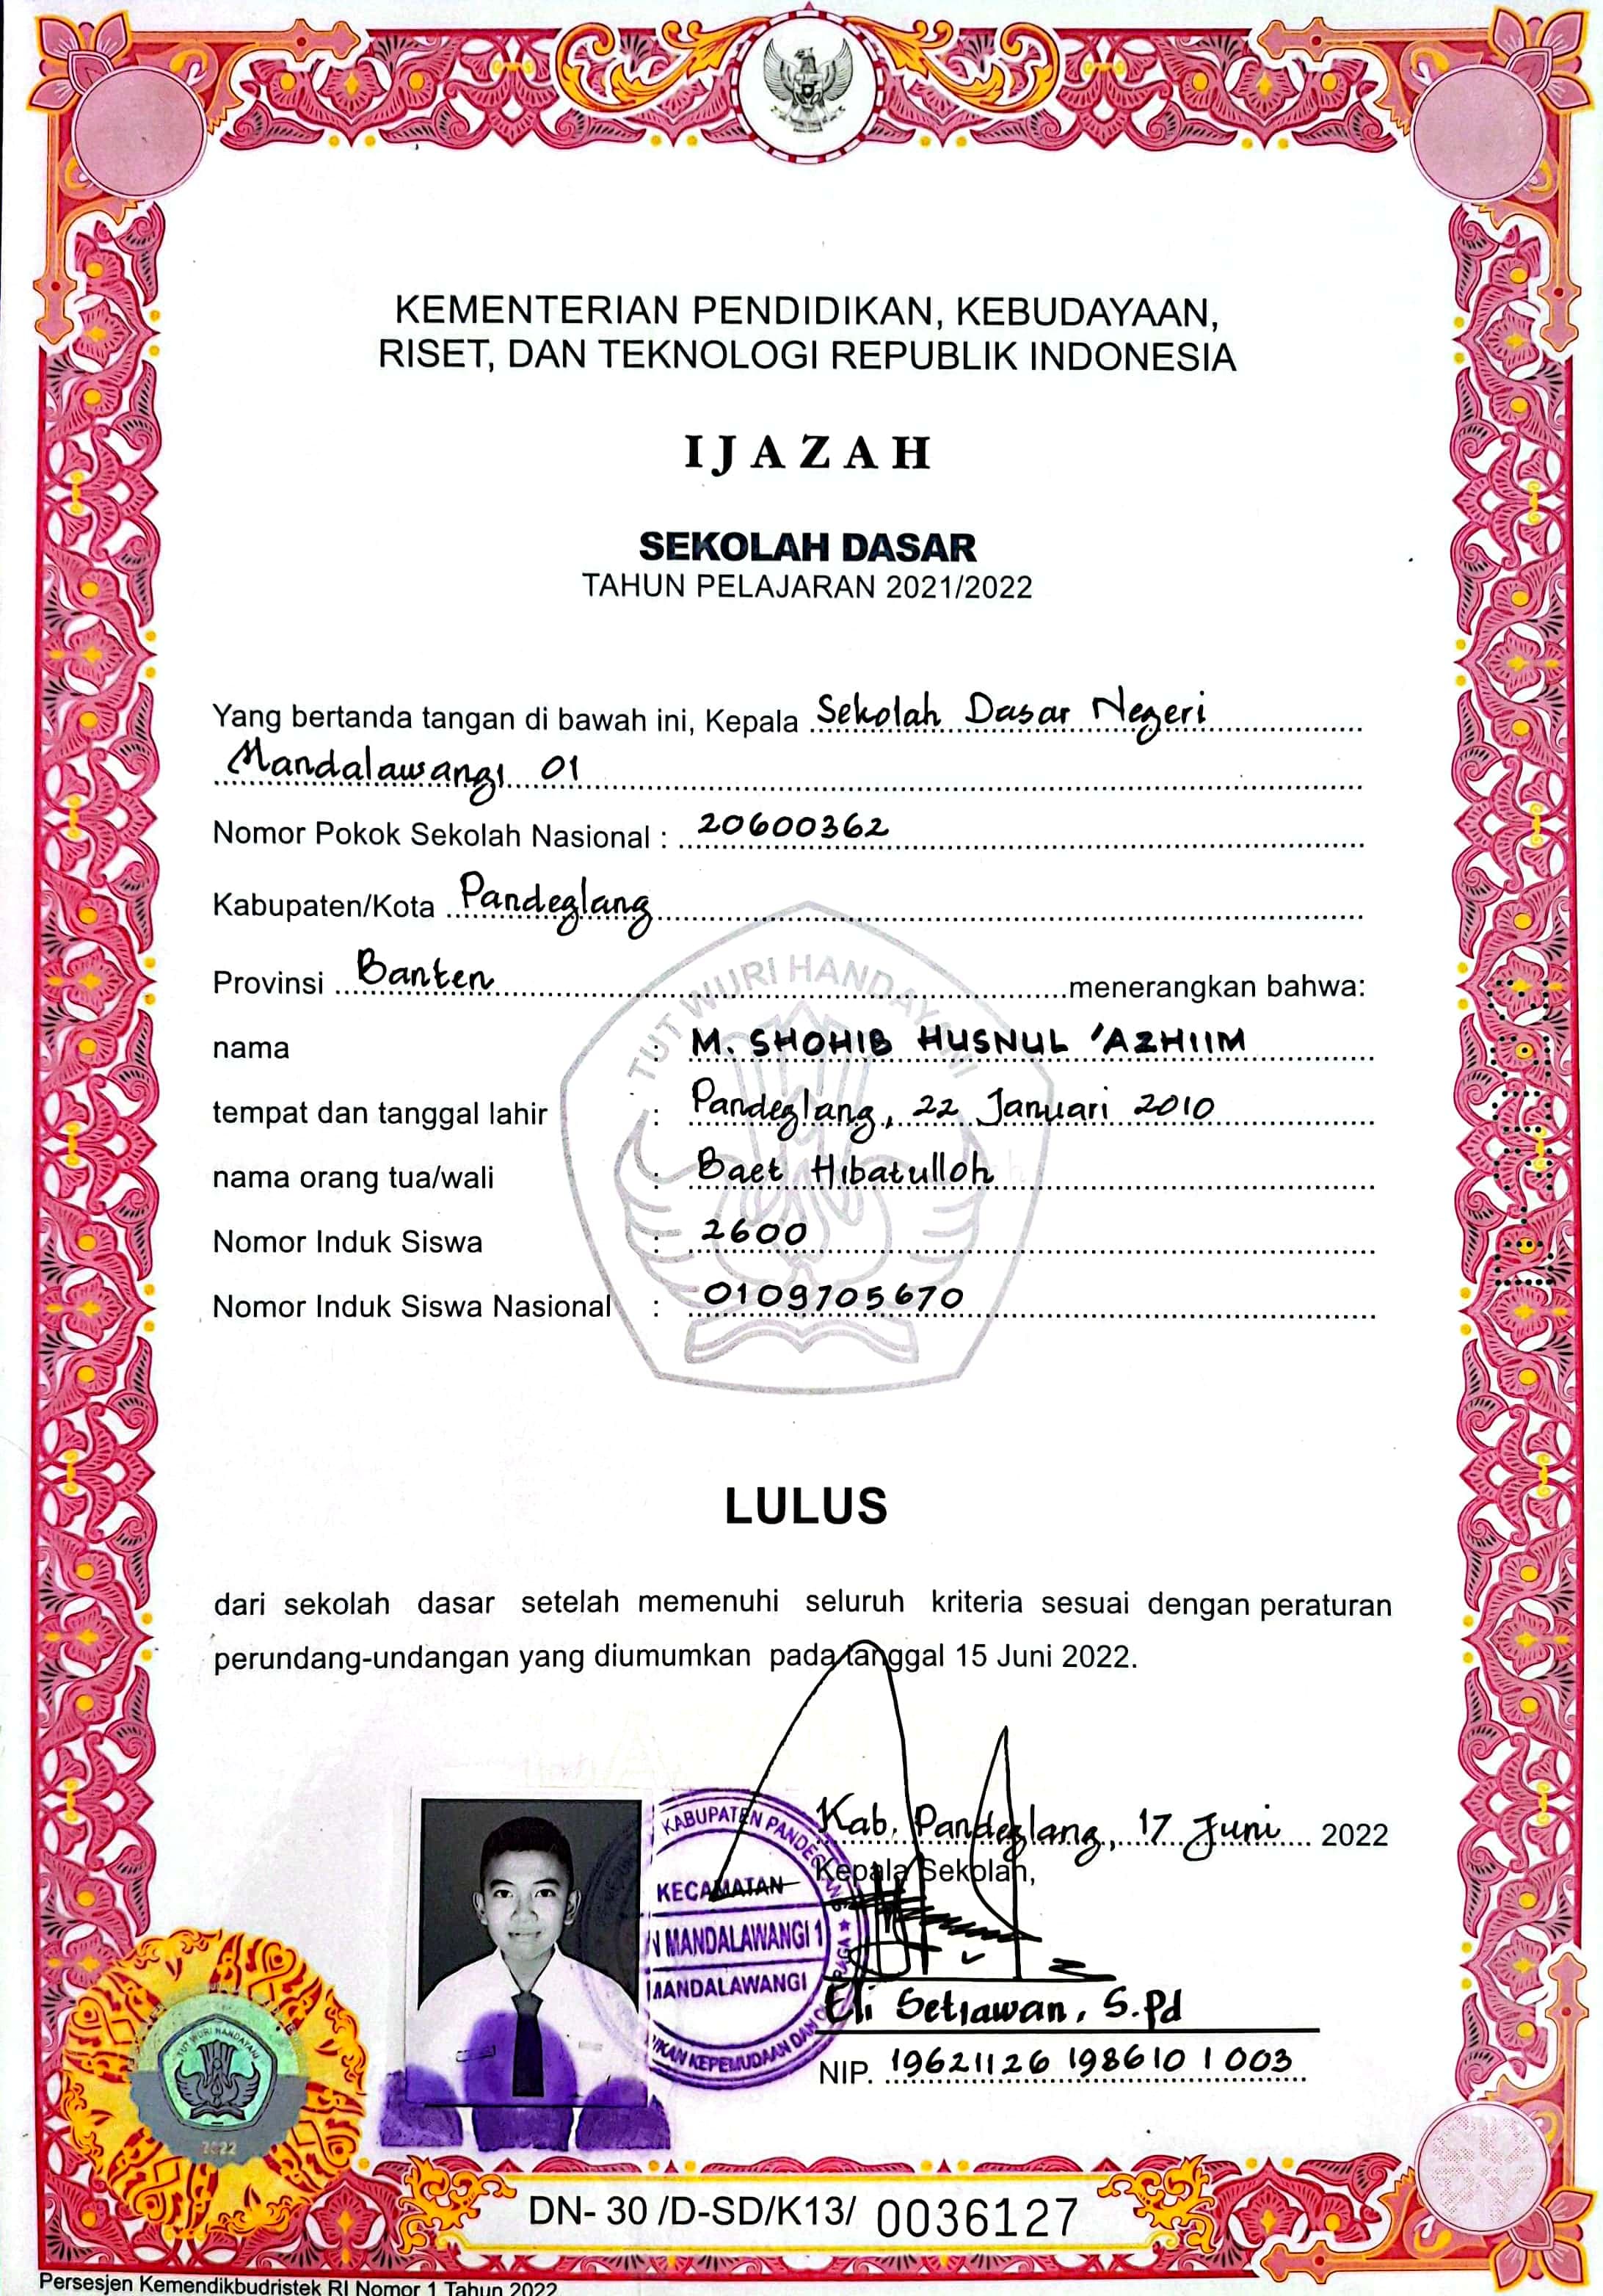 KEMENTERIAN PENDIDIKAN, KEBUDAYAAN,
RISET, DAN TEKNOLOGI REPUBLIK INDONESIA
IJAZAH
SEKOLAH DASAR
TAHUN PELAJARAN 2021/2022
Yang bertanda tangan di bawah ini, Kepala Sekolah Dasar Negeri
Mandalawangi 01
Nomor Pokok Sekolah Nasional : 20600362
Kabupaten/Kota Pandeglang
Provinsi Banten menerangkan bahwa:
TUT WURI HANDAYANI
nama : M. SHOHIB HUSNUL 'AZHIIM
tempat dan tanggal lahir : Pandeglang, 22 Januari 2010
nama orang tua/wali : Baet Hibatulloh
Nomor Induk Siswa : 2600
Nomor Induk Siswa Nasional : 0109705670
LULUS
dari sekolah dasar setelah memenuhi seluruh kriteria sesuai dengan peraturan
perundang-undangan yang diumumkan pada tanggal 15 Juni 2022.
Kab. Pandeglang, 17 Juni 2022
Kepala Sekolah,
KABUPATEN PANDEGLANG
KECAMATAN
N MANDALAWANGI 1
MANDALAWANGI
KEPEMUDAAN DAN
Eli Setiawan, S.Pd
NIP. 19621126 198610 1 003
TUT WURI HANDAYANI
2022
DN- 30 /D-SD/K13/ 0036127
Persesjen Kemendikbudristek RI Nomor 1 Tahun 2022